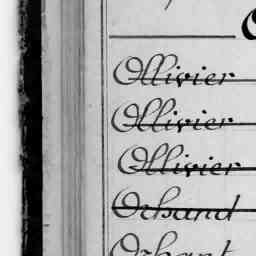 O
Ollivier
Ollivier
Ollivier
Orhand
Orhant